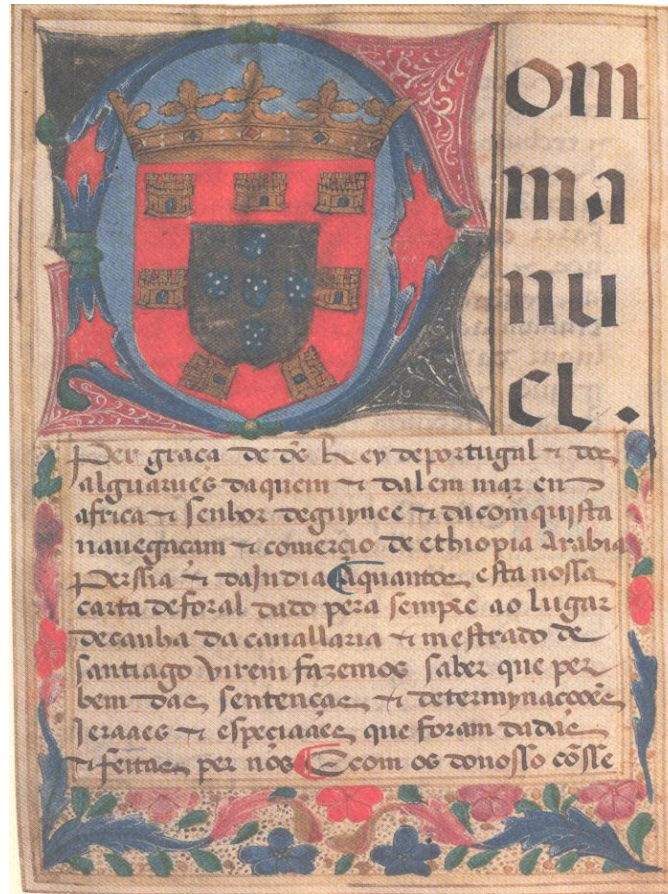 Dom
ma
nu
el.
Per graça de ds Rey de portugal ⁊ dos
alguarues daquem ⁊ dalem mar em
africa ⁊ senhor de guynee ⁊ da comquista
nauegacam ⁊ comercio de ethiopia Arabia
Perssia ⁊ da Jndia Aquantos esta nossa
carta de foral dado pera sempre ao lugar
de canha da cauallaria ⁊ mestrado de
santiago virem fazemos saber que per
bem das sentenças ⁊ determynaçoões
Jeraaes ⁊ especiaães que foram dadas
⁊ feitas per nós E com os do nosso cõsse